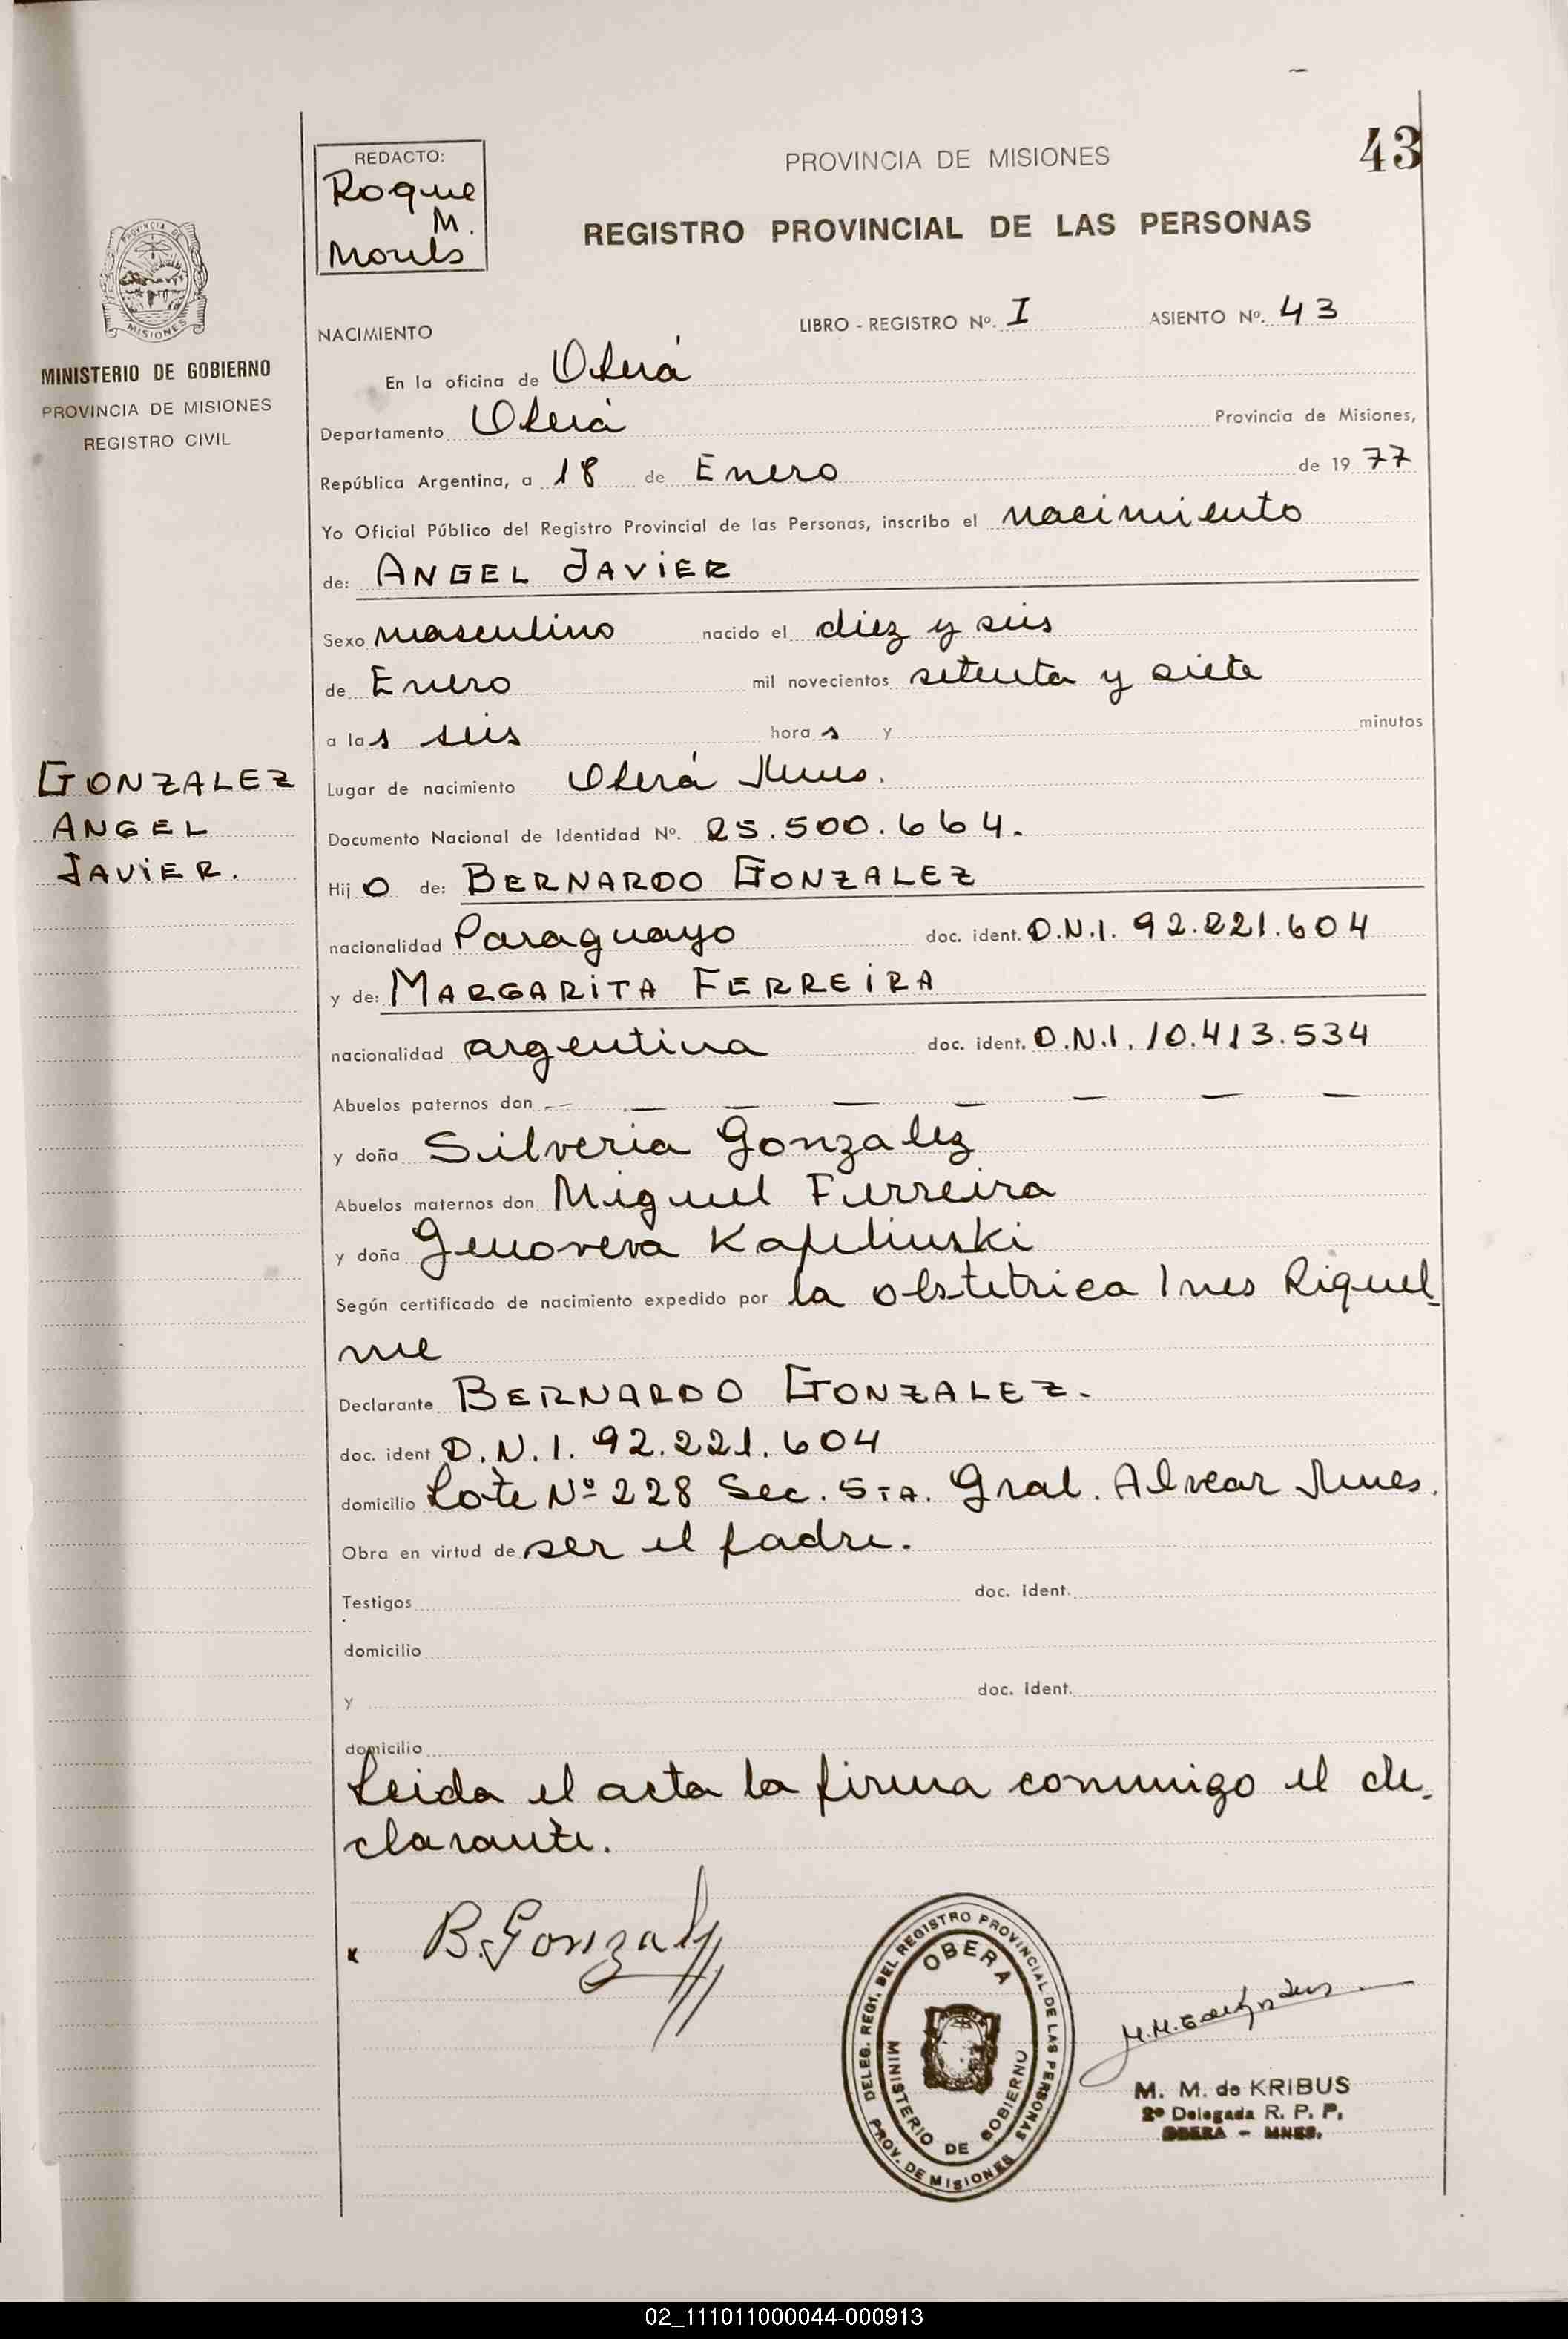 43
REDACTO:
Roque
M.
PROVINCIA DE MISIONES
REGISTRO PROVINCIAL DE LAS PERSONAS
PROVINCIA DE
MISIONES
MINISTERIO DE GOBIERNO
PROVINCIA DE MISIONES
REGISTRO CIVIL
NACIMIENTO LIBRO - REGISTRO Nº. I ASIENTO Nº. 43
En la oficina de Oberá
Departamento Oberá Provincia de Misiones,
República Argentina, a 18 de Enero de 1977
Yo Oficial Público del Registro Provincial de las Personas, inscribo el nacimiento
de: ANGEL JAVIER
Sexo masculino nacido el diez y seis
de Enero mil novecientos setenta y siete
a las seis horas y minutos
Lugar de nacimiento Oberá Mnes.
GONZALEZ
ANGEL
JAVIER.
Documento Nacional de Identidad Nº. 25.500.664.
Hijo de: BERNARDO GONZALEZ
nacionalidad Paraguayo doc. ident. D.N.I. 92.221.604
y de: MARGARITA FERREIRA
nacionalidad argentina doc. ident. D.N.I. 10.413.534
Abuelos paternos don — — — — — — — —
y doña Silveria Gonzalez
Abuelos maternos don Miguel Ferreira
y doña Genoveva Kapelinski
Según certificado de nacimiento expedido por la obstetrica Ines Riquel-
me
Declarante BERNARDO GONZALEZ.
doc. ident D.N.I. 92.221.604
domicilio Lote Nº 228 Sec. 5TA. Gral. Alvear Mnes.
Obra en virtud de ser el padre.
Testigos doc. ident.
domicilio
y doc. ident.
domicilio
Leida el acta la firma conmigo el de-
clarante.
B. Gonzalez
DELEG. REGI. DEL REGISTRO PROVINCIAL DE LAS PERSONAS
PROV. DE MISIONES
OBERA
MINISTERIO DE GOBIERNO
M. M. de KRIBUS
2º Delegada R. P. P.
OBERA - MNES.
02_111011000044-000913